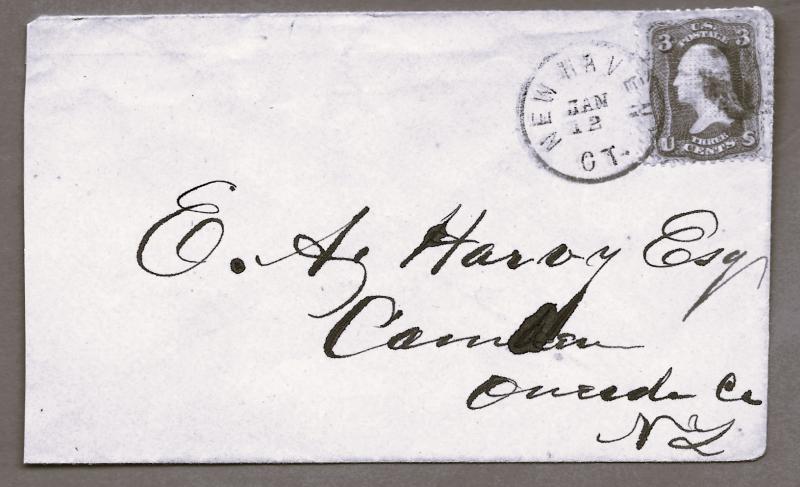 U.S.
POSTAGE
3 3
THREE
CENTS
U S
NEW HAVEN
JAN
12
CT.
E. A. Harvy Esq
Camden
Oneida Co
N Y